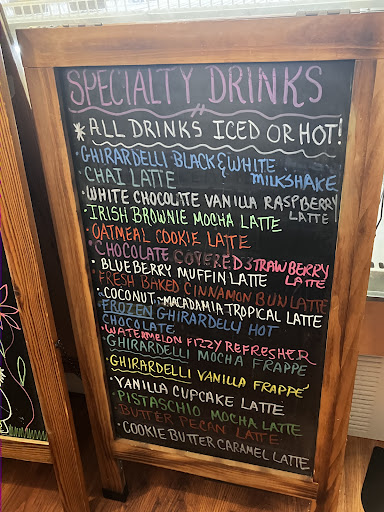 SPECIALTY DRINKS
* ALL DRINKS ICED OR HOT!
• GHIRARDELLI BLACK & WHITE
MILKSHAKE
CHAI LATTE
• WHITE CHOCOLATE VANILLA RASPBERRY
LATTE
• IRISH BROWNIE MOCHA LATTE
• OATMEAL COOKIE LATTE
• CHOCOLATE COVERED STRAWBERRY
LATTE
• BLUEBERRY MUFFIN LATTE
• FRESH BAKED CINNAMON BUN LATTE
• COCONUT-MACADAMIA TROPICAL LATTE
• FROZEN GHIRARDELLY HOT
CHOCOLATE
• WATERMELON FIZZY REFRESHER
• GHIRARDELLI MOCHA FRAPPE
• GHIRARDELLI VANILLA FRAPPÉ
• VANILLA CUPCAKE LATTE
• PISTASCHIO MOCHA LATTE
• BUTTER PECAN LATTE
• COOKIE BUTTER CARAMEL LATTE